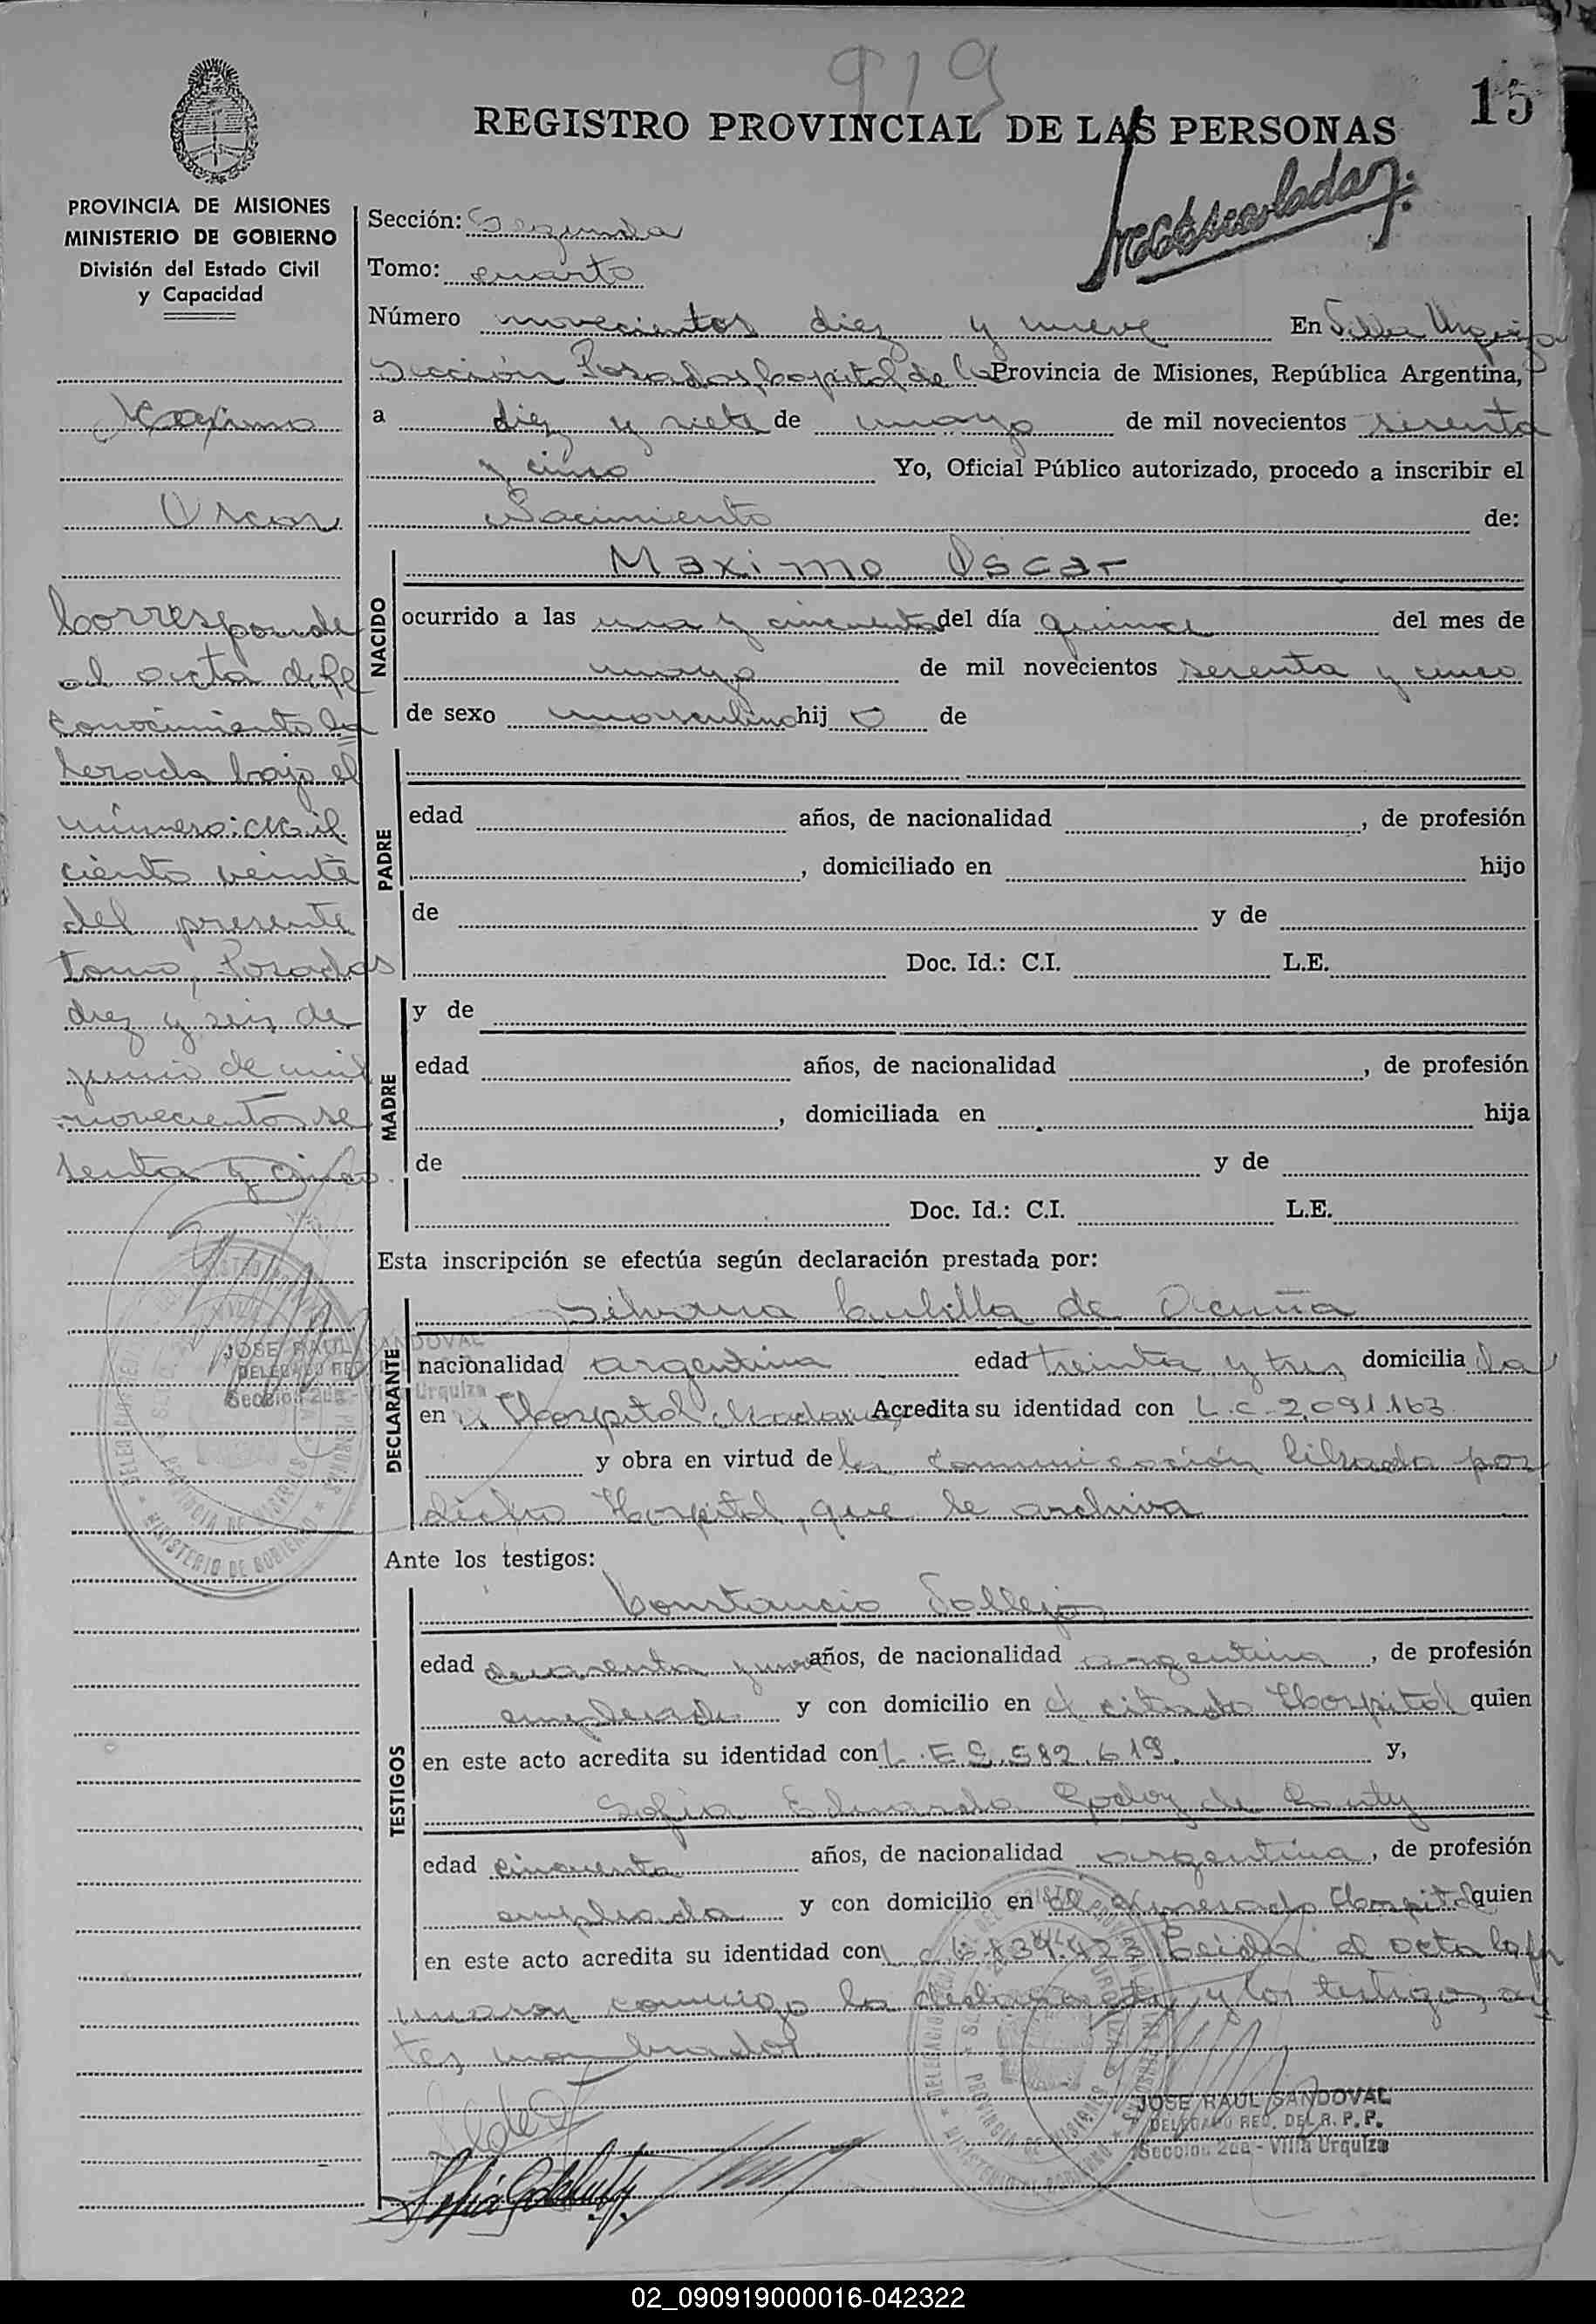 919
15
REGISTRO PROVINCIAL DE LAS PERSONAS
PROVINCIA DE MISIONES
MINISTERIO DE GOBIERNO
División del Estado Civil
y Capacidad
Sección: Segunda
Tomo: cuarto
Número novecientos diez y nueve En Villa Urquiza
Sección Posadas, Capital de la Provincia de Misiones, República Argentina,
a diez y siete de mayo de mil novecientos sesenta
y cinco Yo, Oficial Público autorizado, procedo a inscribir el
Nacimiento de:
Maximo
Oscar
Corresponde
al acta de Re
conocimiento la
brada bajo el
número: Mil
ciento veinte
del presente
tomo, Posadas
diez y seis de
junio de mil
novecientos se
senta y cinco.
NACIDO
Maximo Oscar
ocurrido a las una y cincuenta del día quince del mes de
mayo de mil novecientos sesenta y cinco
de sexo masculino hij o de
PADRE
edad años, de nacionalidad , de profesión
, domiciliado en hijo
de y de
Doc. Id.: C.I. L.E.
MADRE
y de
edad años, de nacionalidad , de profesión
, domiciliada en hija
de y de
Doc. Id.: C.I. L.E.
Esta inscripción se efectúa según declaración prestada por:
DECLARANTE
Silvana Cubilla de Acuña
nacionalidad argentina edad treinta y tres domicilia da
en Hospital Madariaga Acredita su identidad con L.C. 2.091.163
y obra en virtud de la comunicación librada por
dicho Hospital, que se archiva
Ante los testigos:
TESTIGOS
Constancio Vallejos
edad cuarenta y años, de nacionalidad argentina, de profesión
empleado y con domicilio en el citado Hospital quien
en este acto acredita su identidad con L.E. 5.582.619. y,
Sofia Eduarda Godoy de
edad cincuenta años, de nacionalidad argentina, de profesión
empleada y con domicilio en el expresado Hospital quien
en este acto acredita su identidad con Leida el acta la fir
maron conmigo la declarante y los testigos, an
tes nombrados.
JOSE RAUL SANDOVAL
DELEGADO REG. DEL R. P. P.
Sección 2da - Villa Urquiza
JOSE RAUL SANDOVAL
DELEGADO REG
Sección 2da - Urquiza
MINISTERIO DE GOBIERNO
PROVINCIA DE MISIONES
02_090919000016-042322